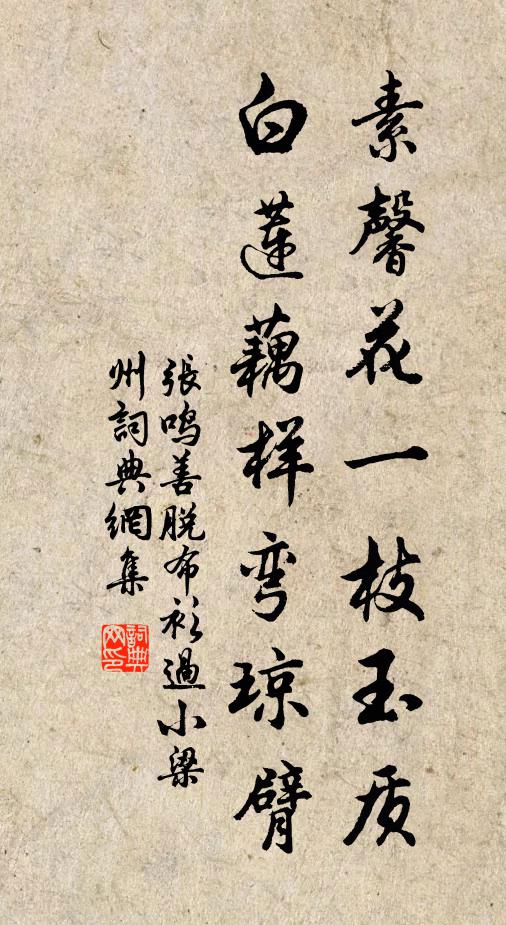 素馨花一枝玉质
白莲藕样弯琼臂
張鸣善脱布衫過小梁
州詞典網集
詞典
网印